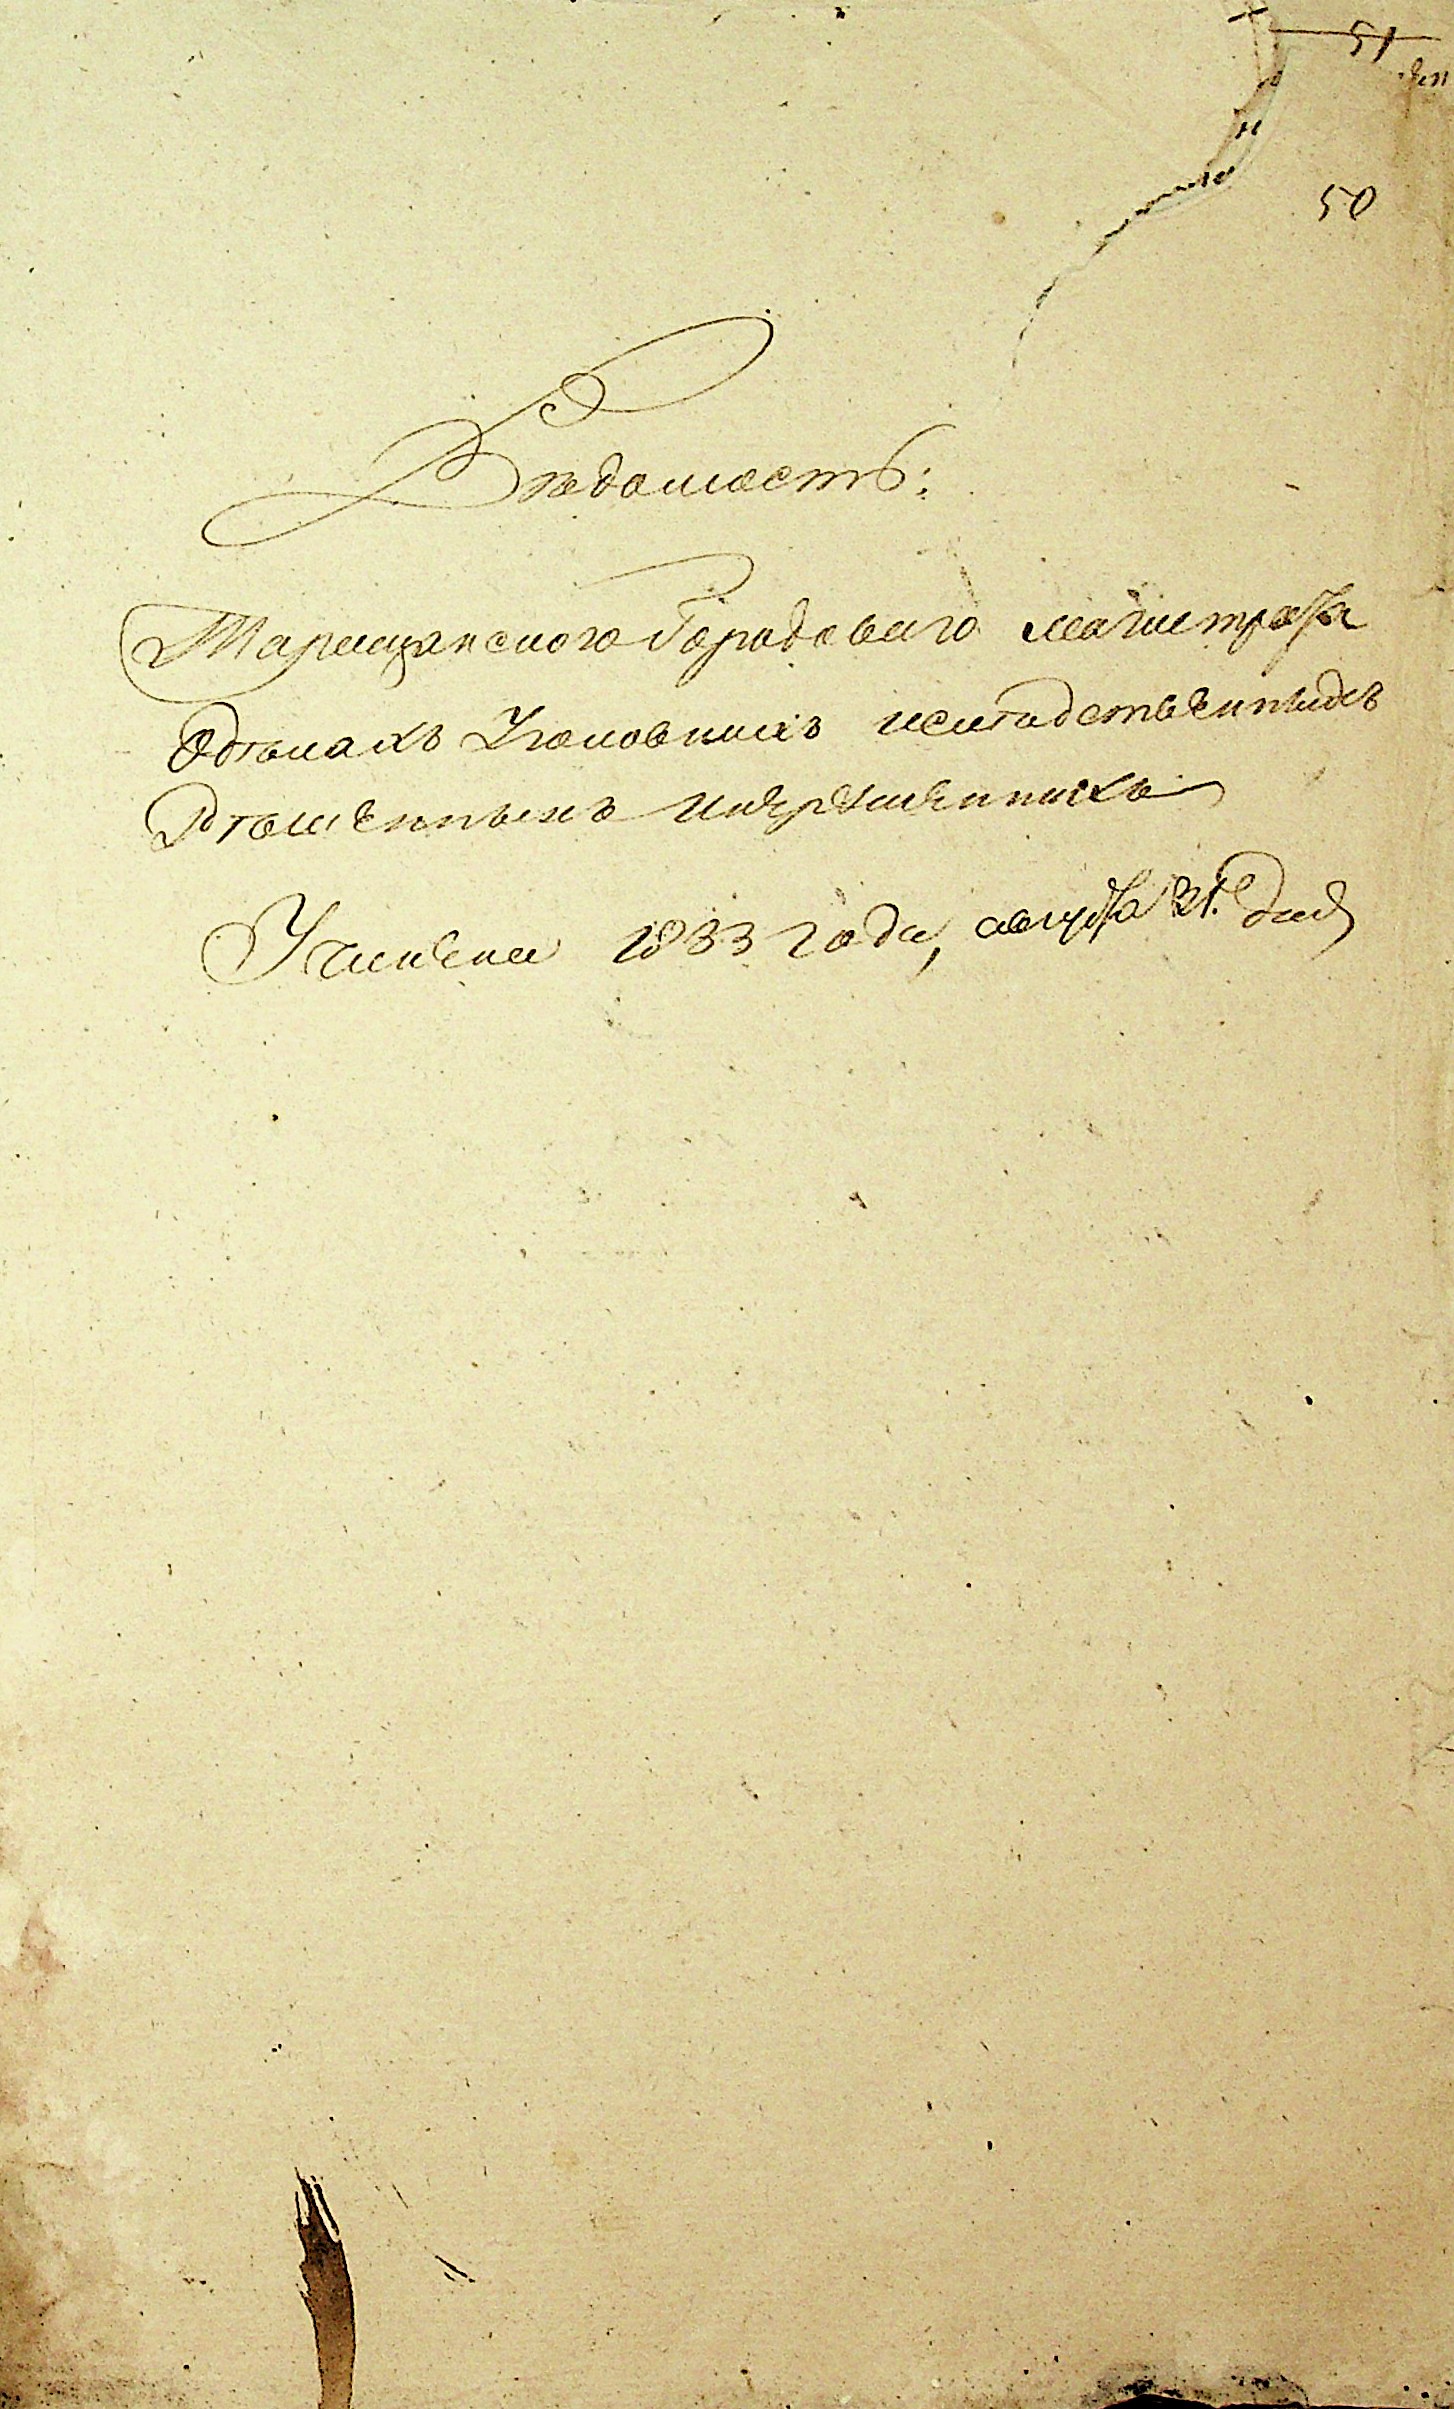 51
50
Вѣдомость:
Таращанского Городового магистрата
Одѣлахъ Уголовныхъ ислѣдственныхъ
Рѣшенныхъ инерѣшенныхъ
Учинена 1833 года, августа 31. дня